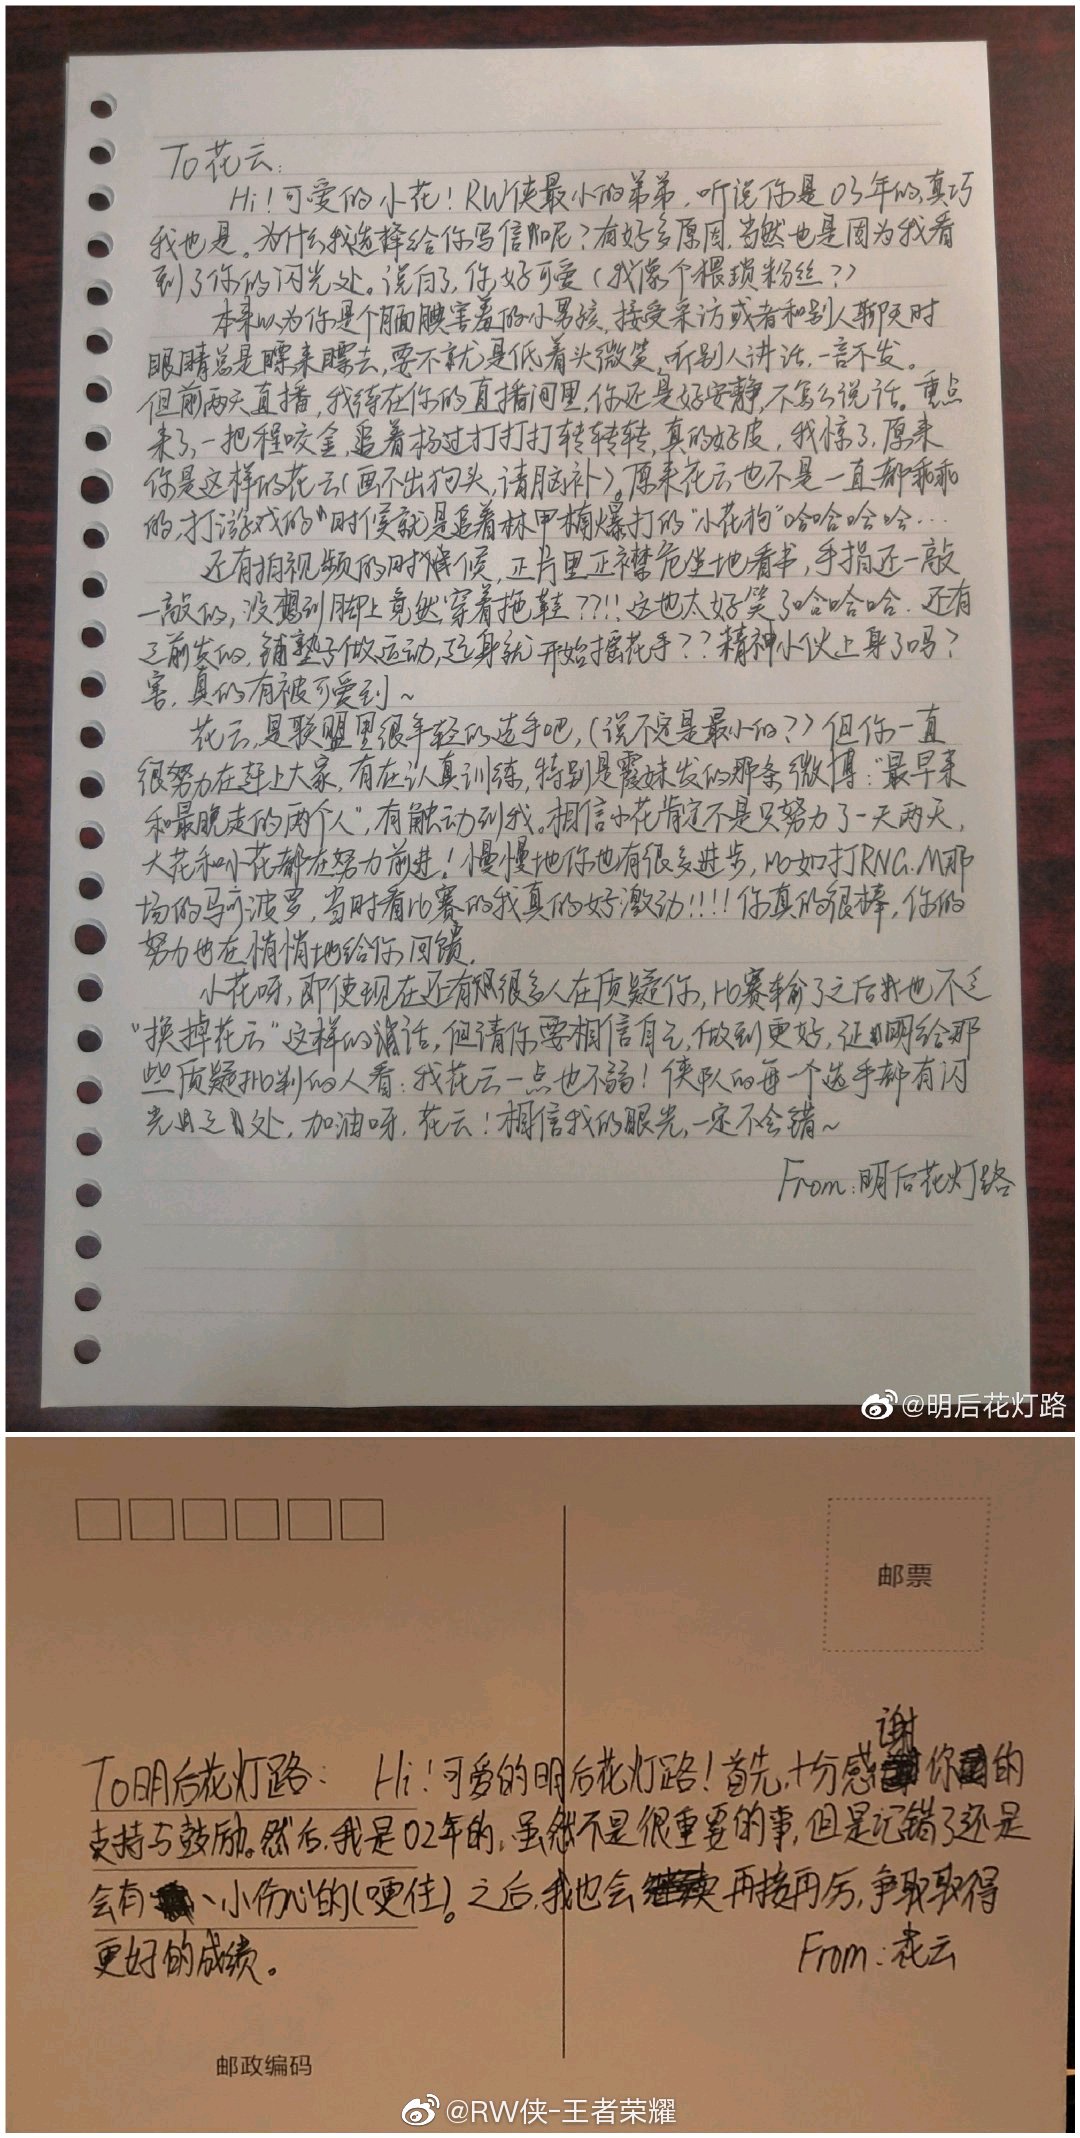 To花云:
Hi!可爱的小花!RW侠最小的弟弟,听说你是03年的,真巧
我也是。为什么我选择给你写信呢?有好多原因,当然也是因为我看
到了你的闪光处。说白了,你好可爱(我像个猥琐粉丝?)
本来以为你是个腼腆害羞的小男孩,接受采访或者和别人聊天时
眼睛总是瞟来瞟去,要不就是低着头微笑,听别人讲话,一言不发。
但前两天直播,我待在你的直播间里,你还是好安静,不怎么说话。重点
来了,一把程咬金,追着杨过打打打转转转,真的好皮,我惊了,原来
你是这样的花云(画不出狗头,请脑补)。原来花云也不是一直都乖乖
的,打游戏的时候就是追着林甲楠爆打的“小花狗”哈哈哈哈...
还有拍视频的时候,正片里正襟危坐地看书,手指还一敲
一敲的,没想到脚上竟然穿着拖鞋??!!这也太好笑了哈哈哈.还有
之前发的,铺垫子做运动,起身就开始摇花手??精神小伙上身了吗?
害,真的有被可爱到~
花云,是联盟里很年轻的选手吧,(说不定是最小的?)但你一直
很努力在赶上大家,有在认真训练,特别是霞妹发的那条微博:“最早来
和最晚走的两个人”,有触动到我。相信小花肯定不是只努力了一天两天,
大花和小花都在努力前进!慢慢地你也有很多进步,比如打RNG.M那
场的马可波罗,当时看比赛的我真的好激动!!!!你真的很棒,你的
努力也在悄悄地给你回馈.
小花呀,即使现在还有很多人在质疑你,比赛输了之后我也不乏
“换掉花云”这样的话,但请你要相信自己,做到更好,证明给那
些质疑批判的人看:我花云一点也不弱!侠队的每一个选手都有闪
光之处,加油呀,花云!相信我的眼光,一定不会错~
From:明后花灯路
@明后花灯路
邮票
To明后花灯路: Hi!可爱的明后花灯路!首先,十分感谢你的
支持与鼓励。然后,我是02年的,虽然不是很重要的事,但是记错了还是
会有、小伤心的(哽住)。之后,我也会继续再接再厉,争取取得
更好的成绩。
From:花云
邮政编码
@RW侠-王者荣耀